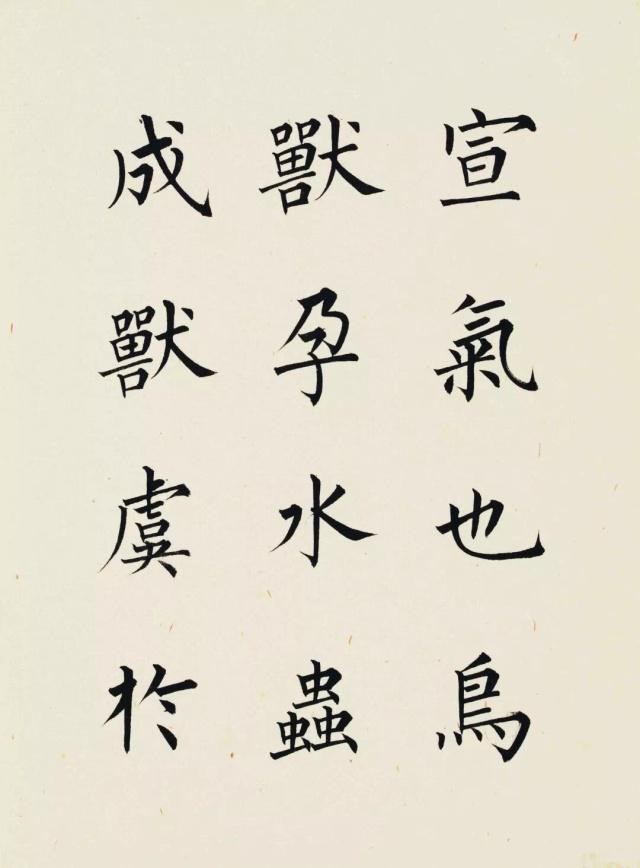 宣氣也鳥
獸孕水蟲
成獸虞於